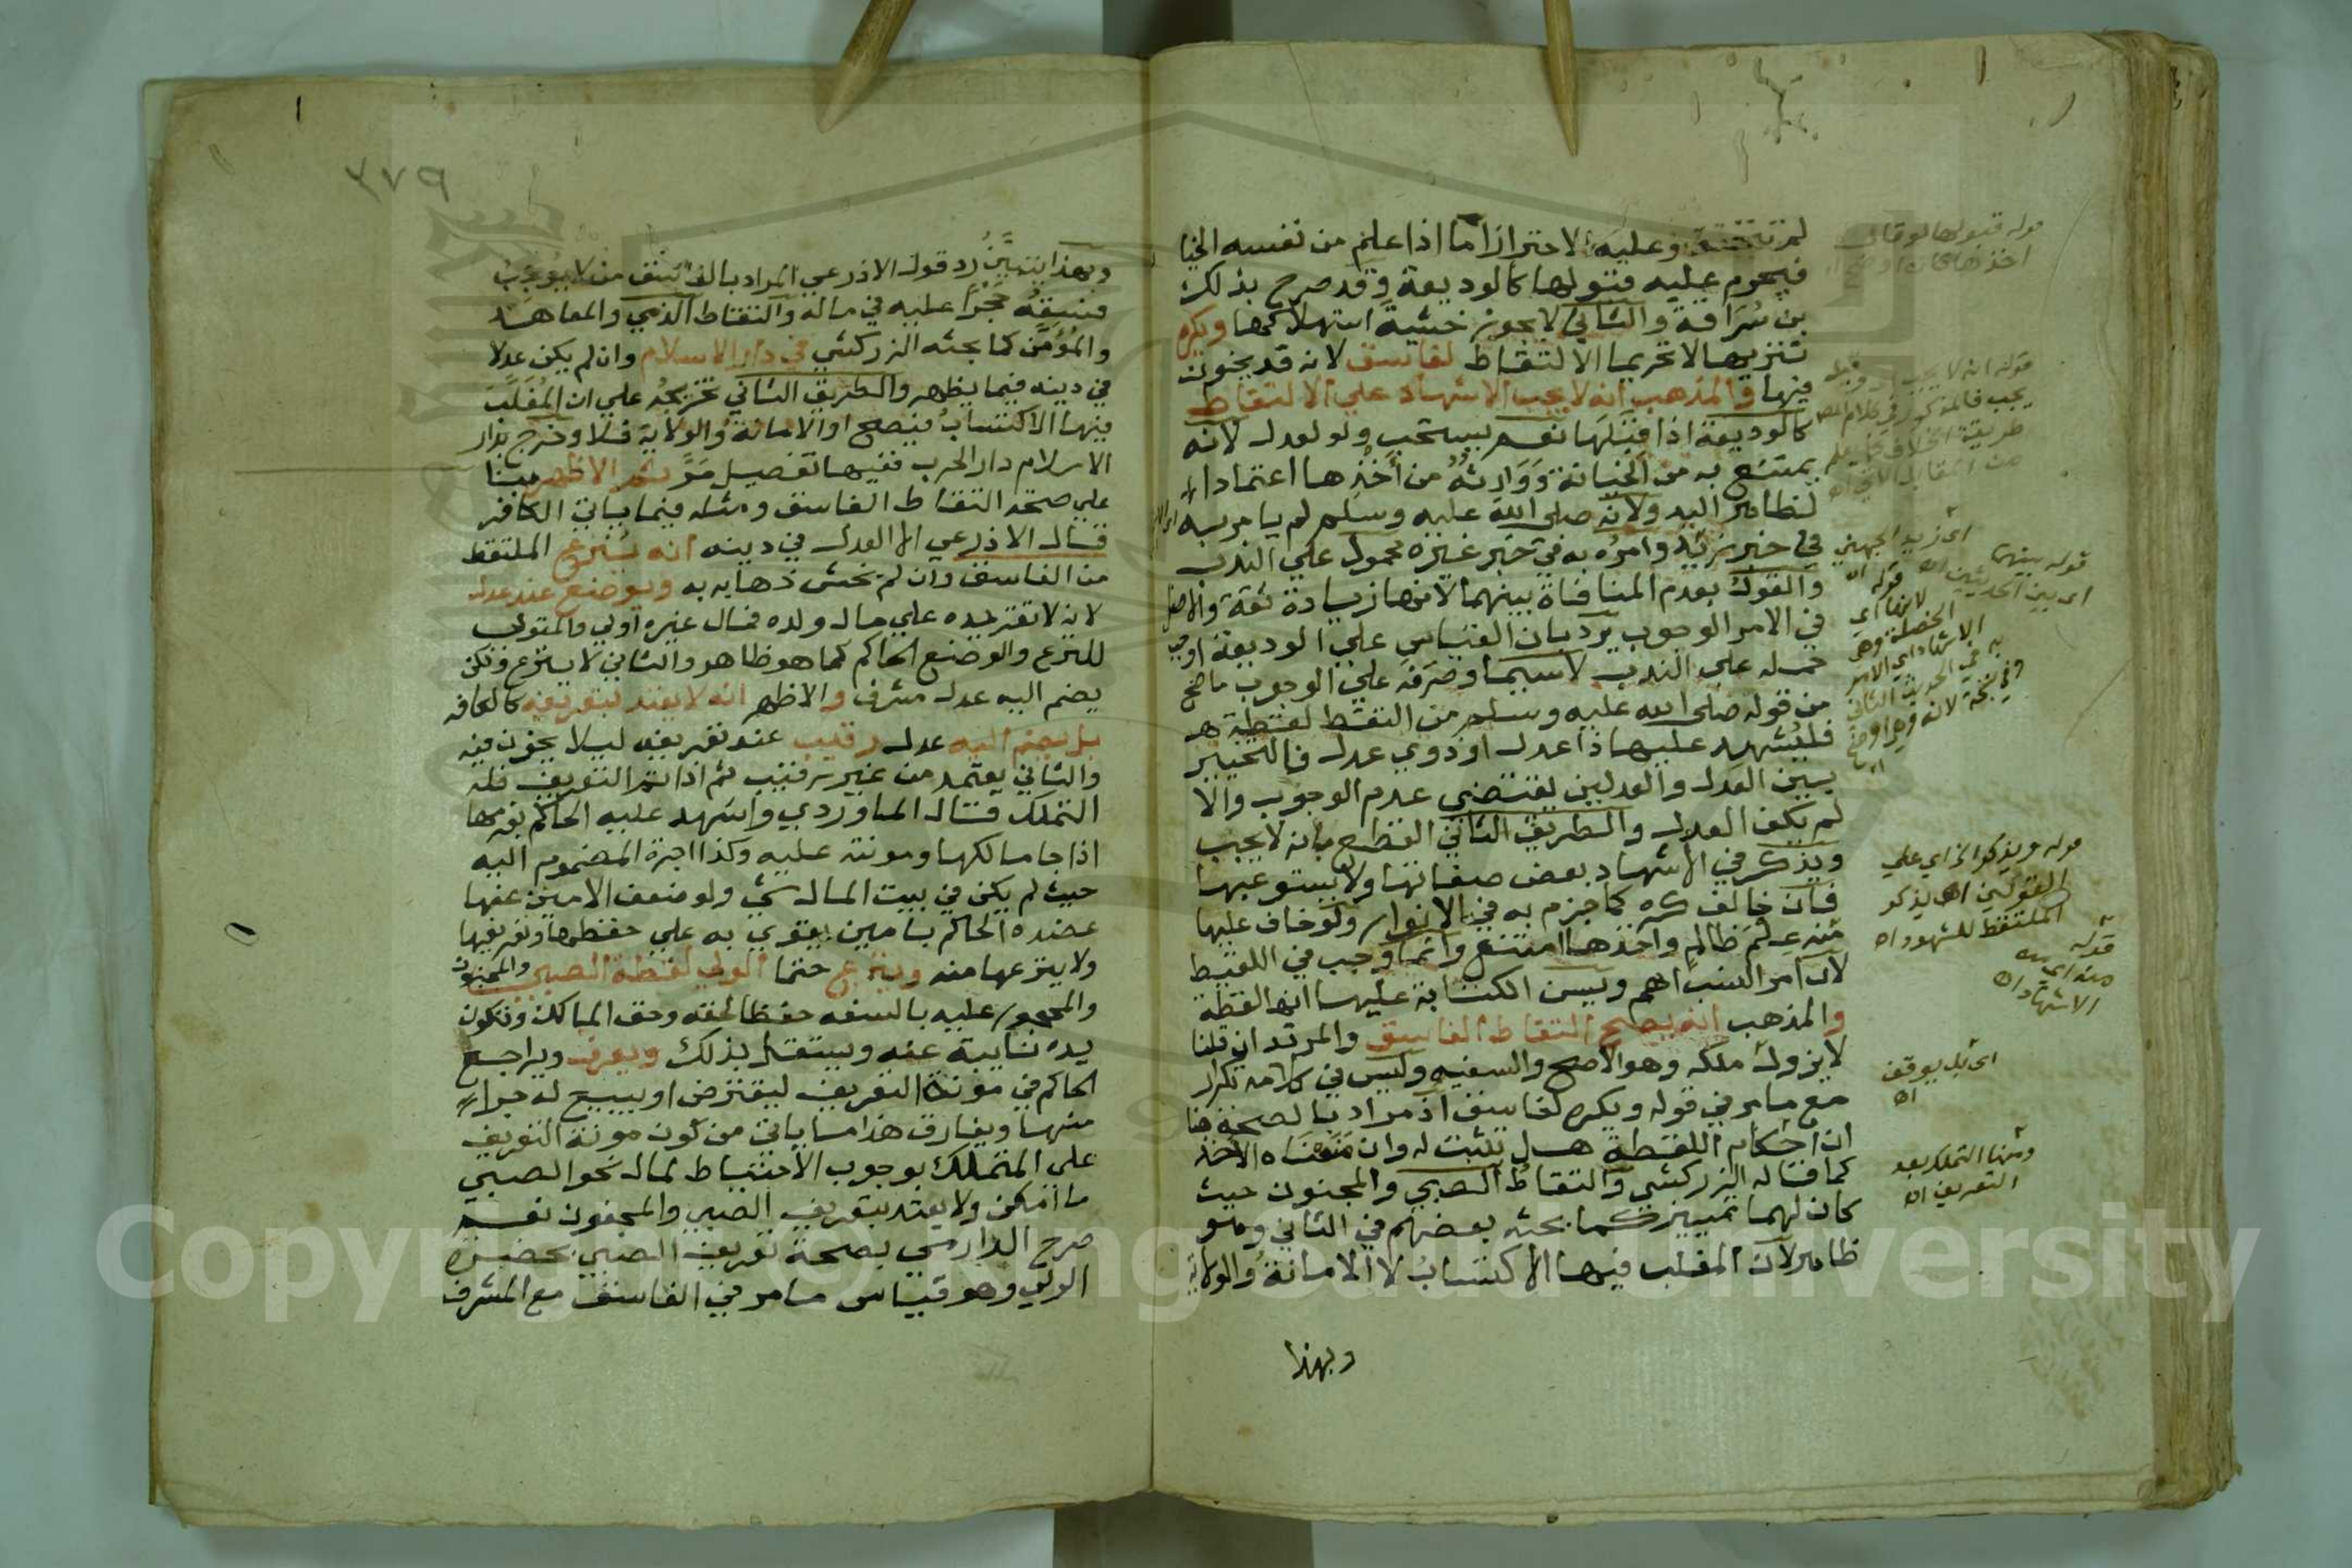 لم تتحقق وعليه الاحتراز اما اذا علم من نفسه الخيا
فيحرم عليه قبولها كالوديعة وقد صرح بذلك
بن سراقة والثاني لا يجوز خشية استهلاكها ويكره
تنزيها لا تحريما الالتقاط لفاسق لانه قد يخون
فيها والمذهب انه لا يجب الاشهاد علي الالتقاط
كالوديعة اذا قبلها نعم يستحب ولو لعدل لانه
يمتنع به من الخيانة ووارثه من اخذها اعتمادا
لظاهر اليد ولانه صلي الله عليه وسلم لم يامر به
في خبر زيد وامره به في خبر غيره محمول علي الندب
والقول بعدم المنافاة بينهما لانها زيادة ثقة والاصل
في الامر الوجوب يرد بان القياس علي الوديعة اوجب
حمله علي الندب لاسيما وصرفه علي الوجوب ما صح
من قوله صلي الله عليه وسلم من التقط لقطة
فليشهد عليها ذا عدل او ذوي عدل فالتخيير
بين العدل والعدلين يقتضي عدم الوجوب والا
لم يكف العدل والطريق الثاني القطع بانه لا يجب
ويذكر في الاشهاد بعض صفاتها ولا يستوعبها
فان خالف كره كما جزم به في الانوار ولو خاف عليها
منه علم ظالم واخذها امتنع وانما وجب في اللقيط
لان امر النسب اهم ويسن الكتابة عليها انها لقطة
والمذهب انه يصح التقاط الفاسق والمرتد ان قلنا
لا يزول ملكه وهو الاصح والسفيه وليس في كلامه تكرار
مع ما مر في قوله ويكره لفاسق اذ مراد بالصحة هنا
ان احكام اللقطة هل تثبت له وان منعناه الاخذ
كما قاله الزركشي والتقاط الصبي والمجنون حيث
كان لهما تمييز كما بحثه بعضهم في الثاني وهو
ظاهر لان المغلب فيها الاكتساب لا الامانة والولاية
وبهذا
قوله قبولها لو قال
يجب فالمذكور في كلام المص
اي زيد الجهني
قوله بينهما
اي بين الحديثين اه
قوله ويذكر الخ اي علي
القولين اه يذكر
الملتقط للشهود اه
قوله
منه اي من
الاشهاد اه
اي بل يوقف
اه
ومنها التملك بعد
التعريف اه
٣٧٩
وبهذا يتبين رد قول الاذرعي المراد بالفاسق من لا يوجب
فسقه حجرا عليه في ماله والتقاط الذمي والمعاهد
والمؤمن كما بحثه الزركشي في دار الاسلام وان لم يكن عدلا
في دينه فيما يظهر والطريق الثاني تخريجه علي ان المغلب
فيها الاكتساب فيصح او الامانة والولاية فلا وخرج بدار
الاسلام دار الحرب ففيها تفصيل مر ثم الاظهر بنا
علي صحة التقاط الفاسق ومثله فيما ياتي الكافر
قال الاذرعي الا العدل في دينه انه ينزع الملتقط
من الفاسق وان لم يخش ذهابه به ويوضع عند عدل
لانه لا تقر يده علي مال ولده فمال غيره اولي والمتولي
للنزع والوضع الحاكم كما هو ظاهر والثاني لا ينزع ولكن
يضم اليه عدل مشرف والاظهر انه لا يعتد بتعريفه كالكافر
بل يضم اليه عدل رقيب عند تعريفه ليلا يخون فيه
والثاني يعتمد من غير رقيب ثم اذا تم التعريف فله
التملك قال الماوردي واشهد عليه الحاكم بغرمها
اذا جا مالكها ومونته عليه وكذا اجرة المضموم اليه
حيث لم يكن في بيت المال شي ولو ضعف الامين عنها
عضده الحاكم بامين يقوي به علي حفظها وتعريفها
ولا ينزعها منه وينزع حتما الولي لقطة الصبي والمجنون
والمحجور عليه بالسفه حفظا لحقه وحق المالك وتكون
يده نايبة عنه ويستقل بذلك ويعرف ويراجع
الحاكم في مونة التعريف ليقترض او يبيع له جزا
منها ويفارق هذا ما ياتي من كون مونة التعريف
علي المتملك بوجوب الاحتياط لمال نحو الصبي
ما امكن ولا يعتد بتعريف الصبي والمجنون نعم
صرح الدارمي بصحة تعريف الصبي بحضرة
الولي وهو قياس ما مر في الفاسق مع المشرف
Copyright © King Saud University